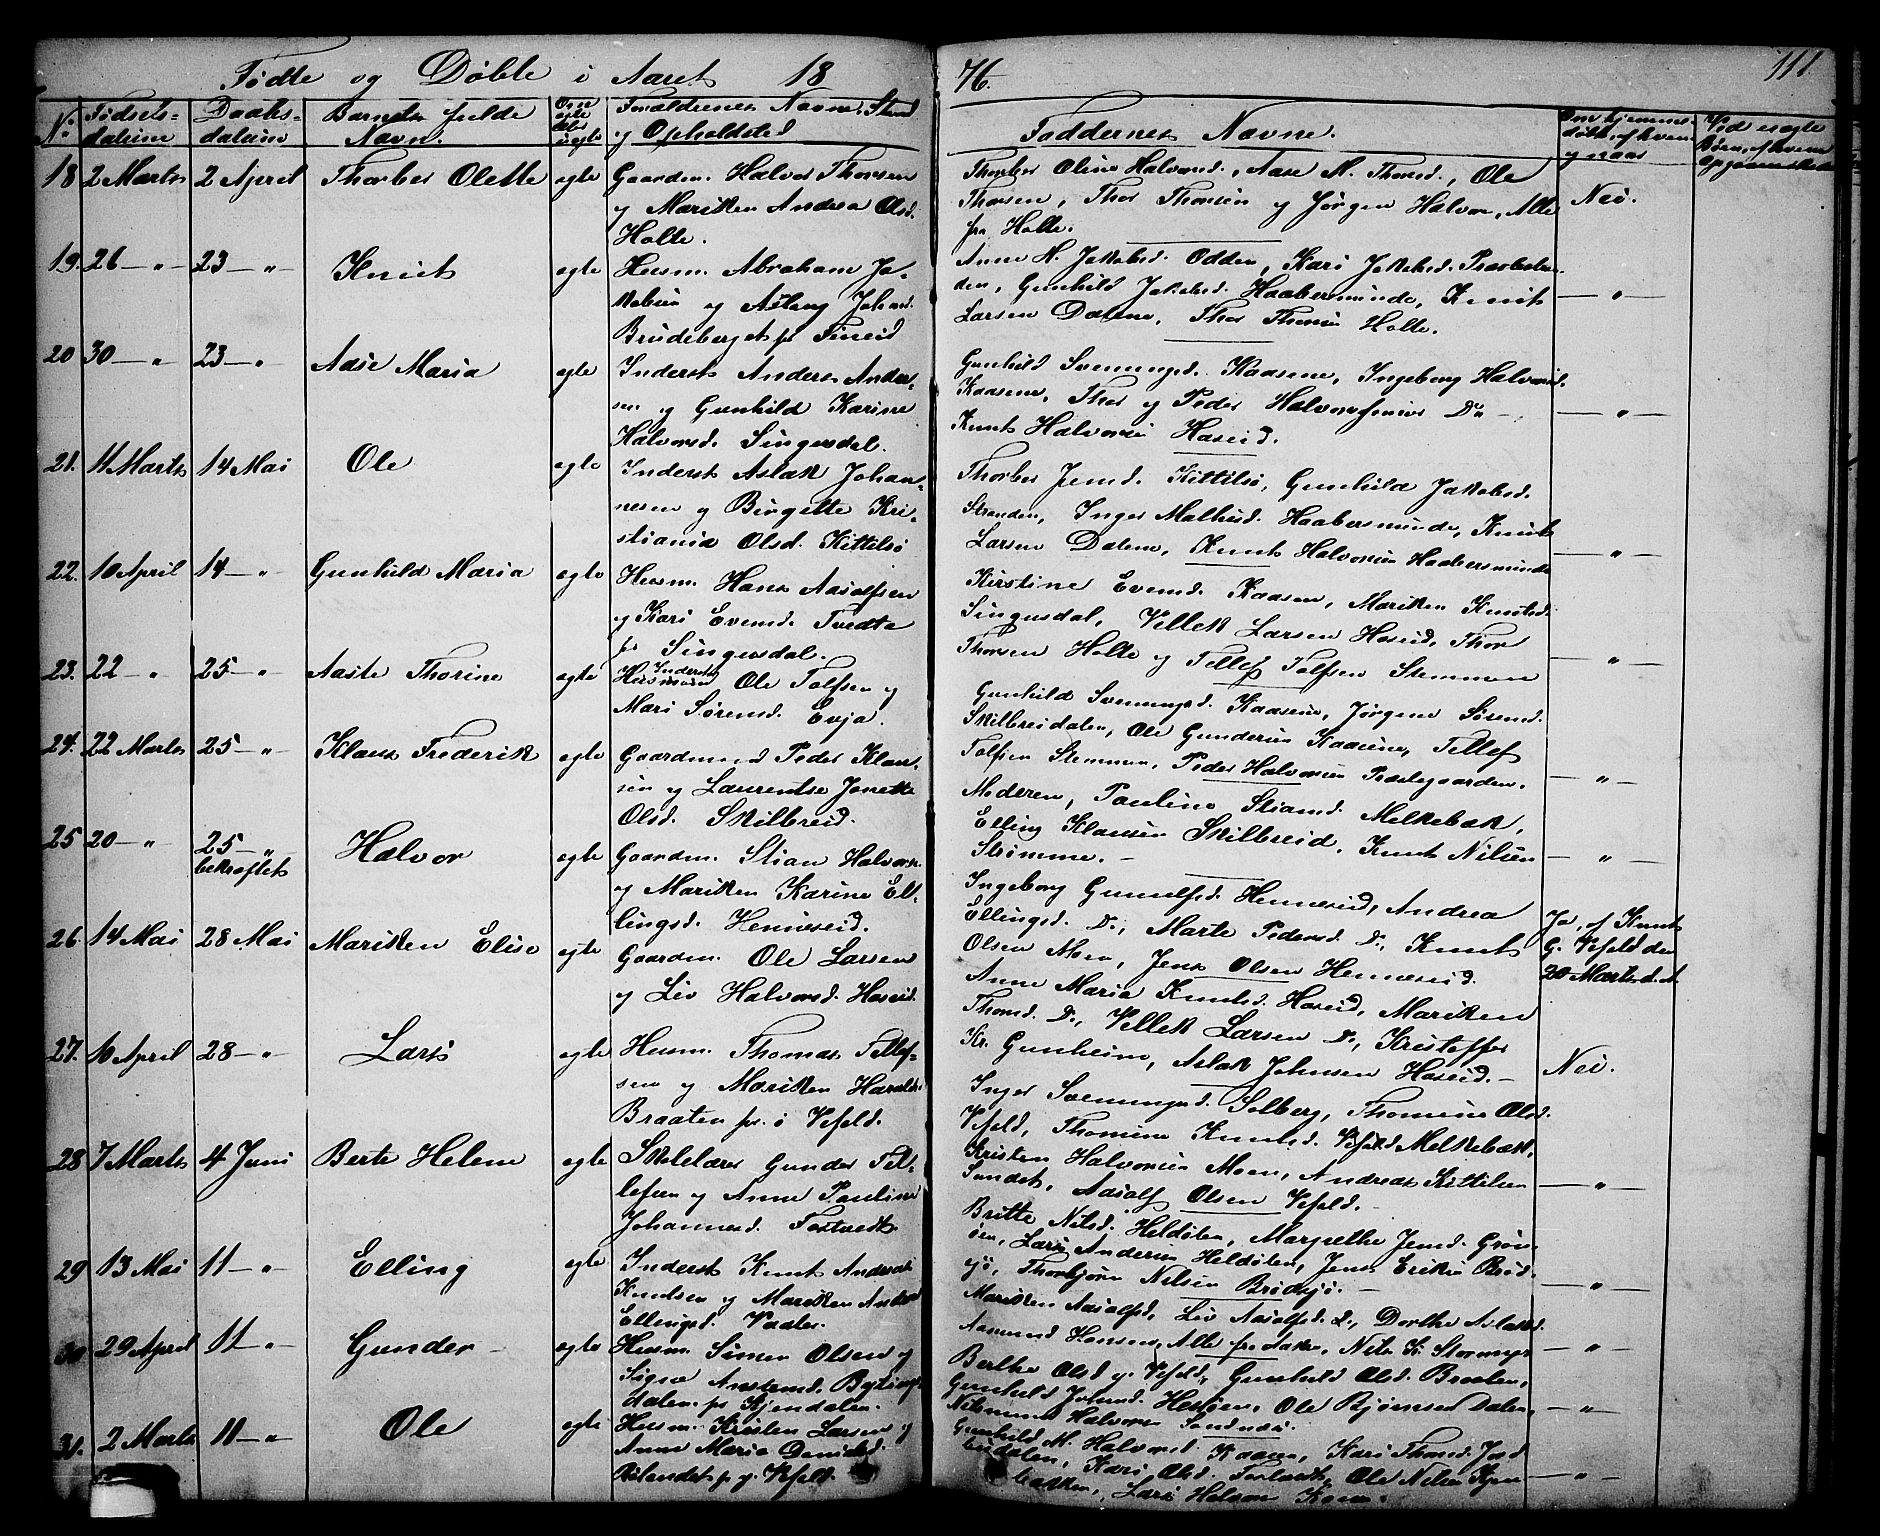 Fødte og Døbte i Aaret 18
76.
111
No
Fødsels-
datum
Daabs-
datum
Barnets fulde
Navn.
Om
egte
eller
uegte
Forældrenes Navne, Stand
og Opholdsted
Faddernes Navne.
Om hjemme-
døbt, af hvem
og naar
Ved uegte
Børn, af hvem
18 2 Marts 2 April Thorber Olette egte Gaardm. Halvor Thorsen
og Mariken Andrea Olsd.
Holte.
Thorber Oline Halvorsd., Aase M. Thorsd., Ole
Thorsen, Thor Thorsen og Jørgen Halvor., Alle
fra Holte.
Nei.
19. 26 — „ — 23 — „ Knut egte Husm. Abraham Ja-
kobsen og Aslaug Johansd.
Brudeberget pr Fineid
Anne K. Jakobsd. Odden, Kari Jakobsd. Præstestran-
den, Gunhild Jakobsd. Haabersmunde, Knut
Larsen Dalene, Thor Thorsen Holte.
— „ —
20 30 — „ 23 — „ Aase Maria egte Inderst Anders Ander-
sen og Gunhild Karine
Halvorsd. Singusdal.
Gunhild Svenungsd. Kaasene, Ingeborg Halvorsd.
Kaasene, Thor og Peder Halvorssenner Do —
Knut Halvorsen Haseid.
— „ —
21. 11 Marts 14 Mai Ole egte Inderst Aslak Johan-
nesen og Birgitte Kri-
stiania Olsd. Kittilsø
Thorber Jensd. Kittilsø, Gunhild Jakobsd.
Stranden, Inger Mathisd. Haabersmunde, Knut
Larsen Dalene, Knut Halvorsen Haabersmunde
— „ —
22. 10 April 14 — „ Gunhild Maria egte Husm. Hans Aasolfsen
og Kari Evensd. Tvedte
pr Singusdal.
Kirstine Evensd. Kaasen, Mariken Knutsd.
Singusdal, Vellek Larsen Haseid, Thor
Thorsen Holte og Tellef Tolfsen Stemmen
— „ —
23. 22 — „ 25 — „ Aaste Thorine egte Inderst
Husmann Ole Tolfsen og
Mari Sørensd. Evja.
Gunhild Svenungsd. Kaasene, Jørgine Sørensd.
Skilbreidalen, Ole Gundersen Kaasene, Tellef
Tolfsen Stemmen, Peder Halvorsen Prestegaarden.
— „ —
24. 22 Marts 25 — „ Klaus Frederik egte Gaardmand Peder Klau-
sen og Laurentse Jonette
Olsd. Skilbreid.
Moderen, Pauline Stiansd. Melkebæk,
Elling Klausen Skilbreid, Knut Nilsen
Strømme. —
— „ —
25 20 — „ 25 — „
bekræftet Halvor egte Gaardm. Stian Halvors.
og Mariken Karine El-
lingsd. Henneseid.
Ingeborg Gunulfsd. Henneseid, Andrea
Ellingsd. Do., Marte Pedersd. Do., Knut
Olsen Moen, Jens Olsen Henneseid.
Ja, af Knut
G. Vefald den
20 Marts d. A.
26 14 Mai 28 Mai Mariken Elise egte Gaardm. Ole Larsen
og Liv Halvorsd. Haseid.
Anne Maria Knutsd. Haseid, Mariken
Thomsd. Do., Vellek Larsen Do., Kristoffer
Kr. Gunheim, Aslak Johnsen Haseid. —
Nei.
27. 10 April 28 — „ Lars egte Husm. Thomas Tellef-
sen og Mariken Haralds.
Braaten pr. ø Vefald.
Inger Svenungsd. Solberg, Thomine Olsd.
Vefald, Thomine Knutsd. Vefald Melkebæk,
Kristen Halvorsen Moen, Andreas Kittilsen
Sundet, Aasolf Olsen Vefald.
— „ —
28 7 Marts 4 Juni Berte Helene egte Skolelærer Gunder Tel-
lefsen og Anne Pauline
Johannesd. Tostvedt
Britte Nilsd. Heldøten, Margrethe Jensd. Grøn-
øen, Lars Andersen Heldøten, Jens Eriksen Brød-
sjø, Thorbjørn Nilsen Brødsjø. —
— „ —
29 13 Mai 11 — „ Elling egte Inderst Knut Andreas
Knudsen og Mariken Andrea
Ellingsd. Vaaler.
Mariken Aasolfsd., Liv Aasolfsd. Do., Dorthe Aslaksd.
Aasmund Hansen, Alle fra Aasen, Nils K. Stormyr
— „ —
30 29 April 11 — „ Gunder egte Husm. Simen Olsen og
Signe
dalen pr Kjendalen.
Berthe Olsd y. Vefald, Gunhild Olsd. Braaten,
Gunhild Johnsd. Ole Bjørnsen Dalen,
Halvorsen Sandnes.
— „ —
31. 2 Marts 11 — „ Ole egte Husm. Kirsten Larsen og
Anne Maria Danielsd.
Rølandet pr y. Vefald
Gunhild M. Halvorsd. Kaasen, Kari Thorsd.
Kari Olsd. Ole Nilsen
Lars Halvor
— „ —